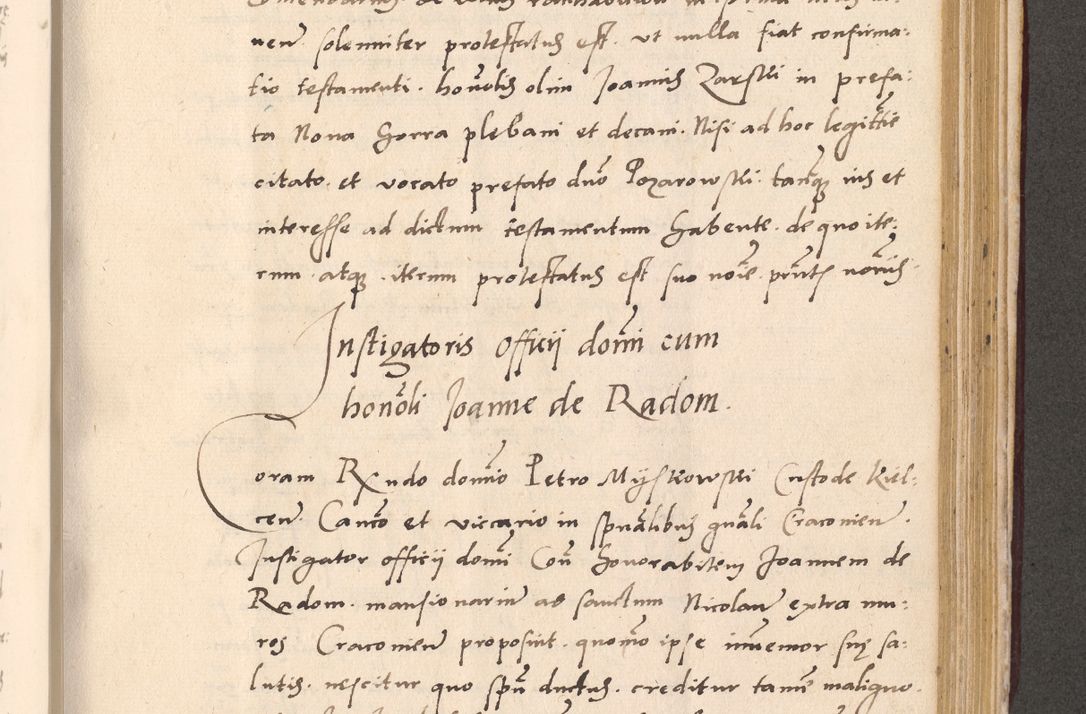 uen̄ solemniter protestatus est. ut nulla fiat confirma:
tio testamenti. hono̅lis olim Joannis Zarski in prefa:
ta Nona Gorra plebani et decani. Nisi ad hoc legitt̅ie
citato. et vocato prefato dn̅o Pozarowski. tanq̅ ius et
interesse ad dictum testamentum habente. de quo ite:
rum. atq̅ . iterum protestatus est suo noi̅e. pn̅t. no̅riis.
Instigatoris officii domi̅ni cum
hono̅li Joanne de Radom.
Coram Rx̅ndo domi̅no Petro Myskowski Custode Kiel:
cen̄. Can̅co et viccario in sp̅ualibus gn̅ali Cracouien̄.
Instigator officii domi̅ni Con̅ honorabilem Joannem de
Radom. mansionarium ad sanctum Nicolaum extra mu:
ros Cracouien̄ proposuit. quomo̅ ipse immemor suę sa:
lutis. nescitur quo sp̅u ductus. creditur tame̅ maligno.